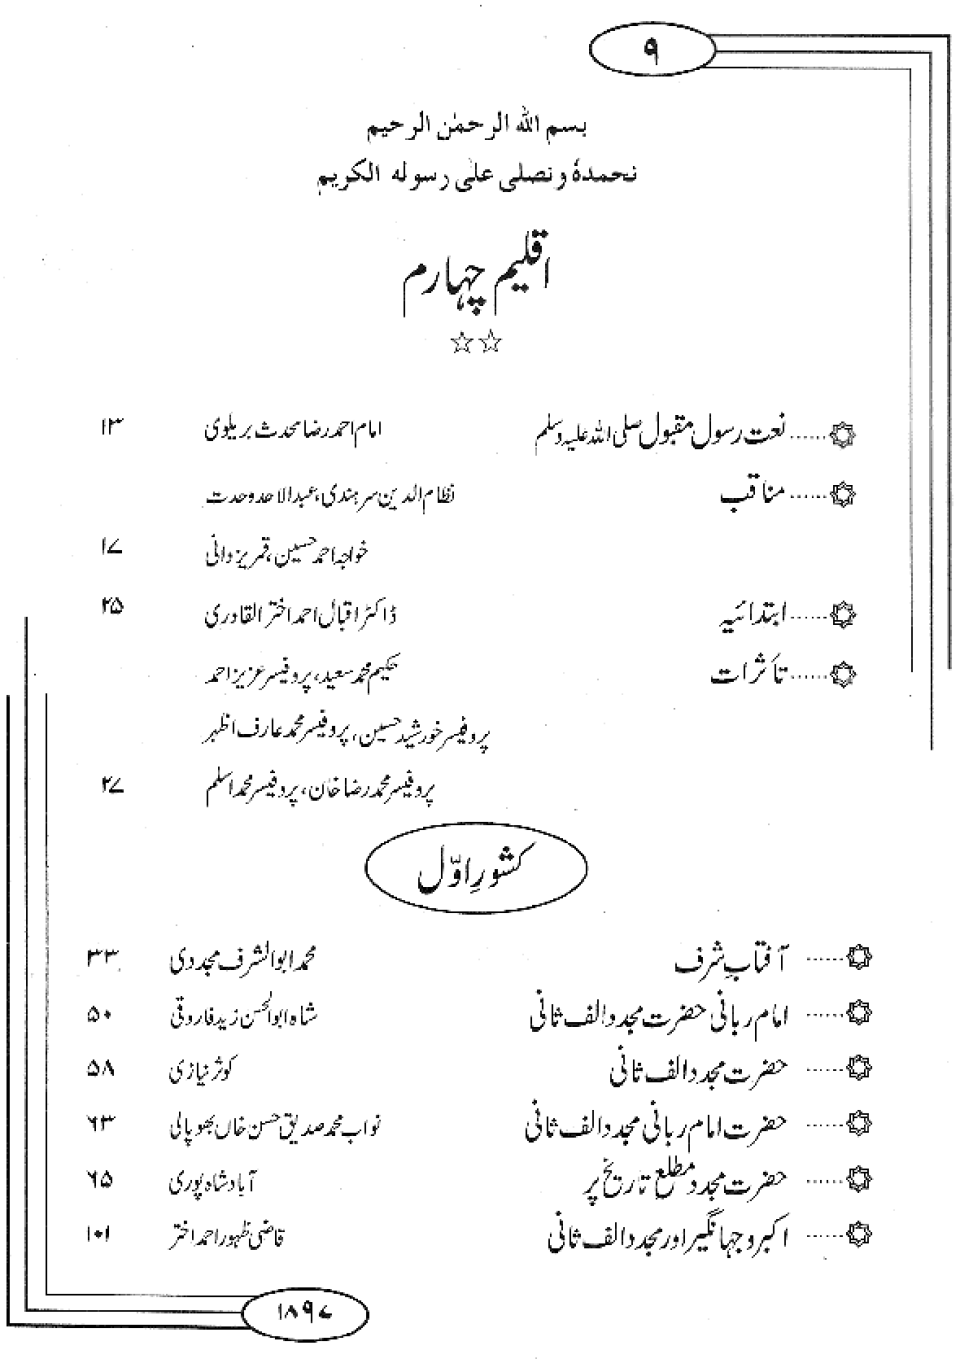 ۹
بسم اللہ الرحمٰن الرحیم
نحمدہٗ ونصلی علی رسولہ الکریم
اقلیم چہارم
☆☆
۞......نعت رسول مقبول صلی اللہ علیہ وسلم امام احمد رضا محدث بریلوی ۱۳
۞......مناقب نظام الدین سرہندی، عبدالاحد وحدت
خواجہ احمد حسین، قمر یزدانی ۱۷
۞......ابتدائیہ ڈاکٹر اقبال احمد اختر القادری ۲۵
۞......تأثرات حکیم محمد سعید، پروفیسر عزیز احمد
پروفیسر خورشید حسین، پروفیسر محمد عارف اظہر
پروفیسر محمد رضا خان، پروفیسر محمد اسلم ۲۷
کشورِ اوّل
۞......آفتابِ شرف محمد ابوالشرف مجددی ۳۳
۞......امام ربانی حضرت مجدد الف ثانی شاہ ابوالحسن زید فاروقی ۵۰
۞......حضرت مجدد الف ثانی کوثر نیازی ۵۸
۞......حضرت امام ربانی مجدد الف ثانی نواب محمد صدیق حسن خاں بھوپالی ۶۳
۞......حضرت مجدد مطلع تاریخ پر آباد شاہ پوری ۶۵
۞......اکبر و جہانگیر اور مجدد الف ثانی قاضی ظہور احمد اختر ۱۰۱
۱۸۹۷